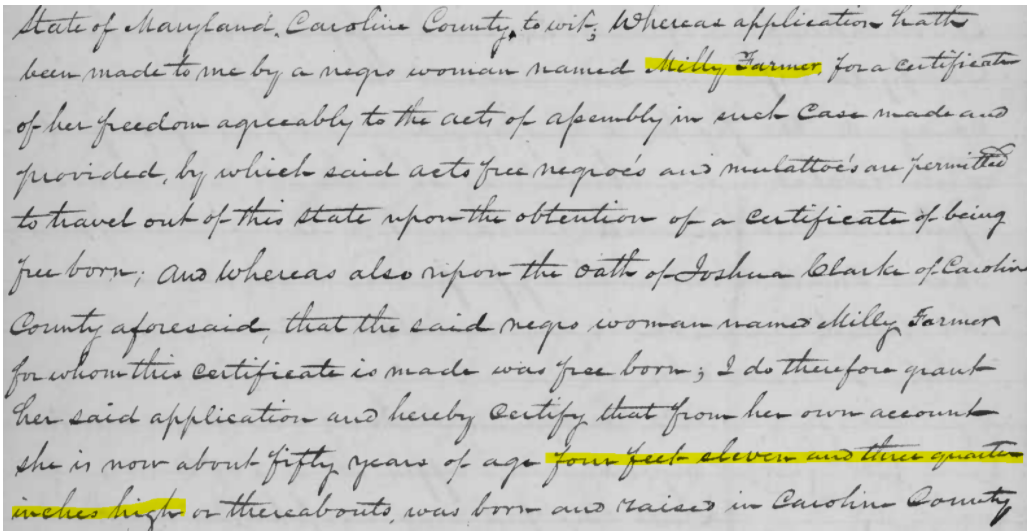 State of Maryland, Caroline County, to wit; Whereas application hath
been made to me by a negro woman named Milly Farmer, for a certificate
of her freedom agreeably to the acts of assembly in such Case made and
provided, by which said acts free negroe's and mulattoe's are permitted
to travel out of this state upon the obtention of a certificate of being
free born; and whereas also upon the oath of Joshua Clarke of Caroline
County aforesaid, that the said negro woman named Milly Farmer
for whom this certificate is made was free born; I do therefore grant
her said application and hereby Certify that from her own account
she is now about fifty years of age four feet eleven and three quarter
inches high or thereabouts, was born and raised in Caroline County